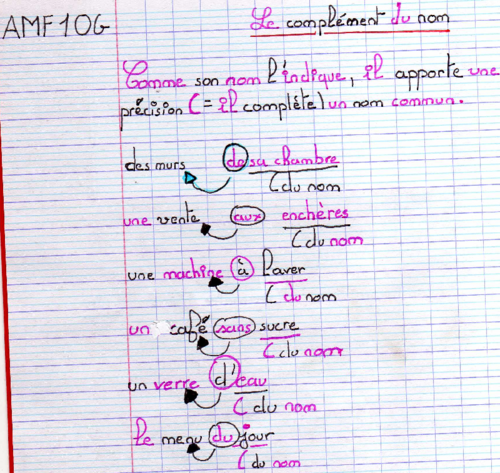 AMF10G
Le complément du nom
Comme son nom l'indique, il apporte une
précision (= il complète) un nom commun.
des murs de sa chambre
C du nom
une vente aux enchères
C du nom
une machine à laver
C du nom
un café sans sucre
C du nom
un verre d'eau
C du nom
le menu du jour
C du nom